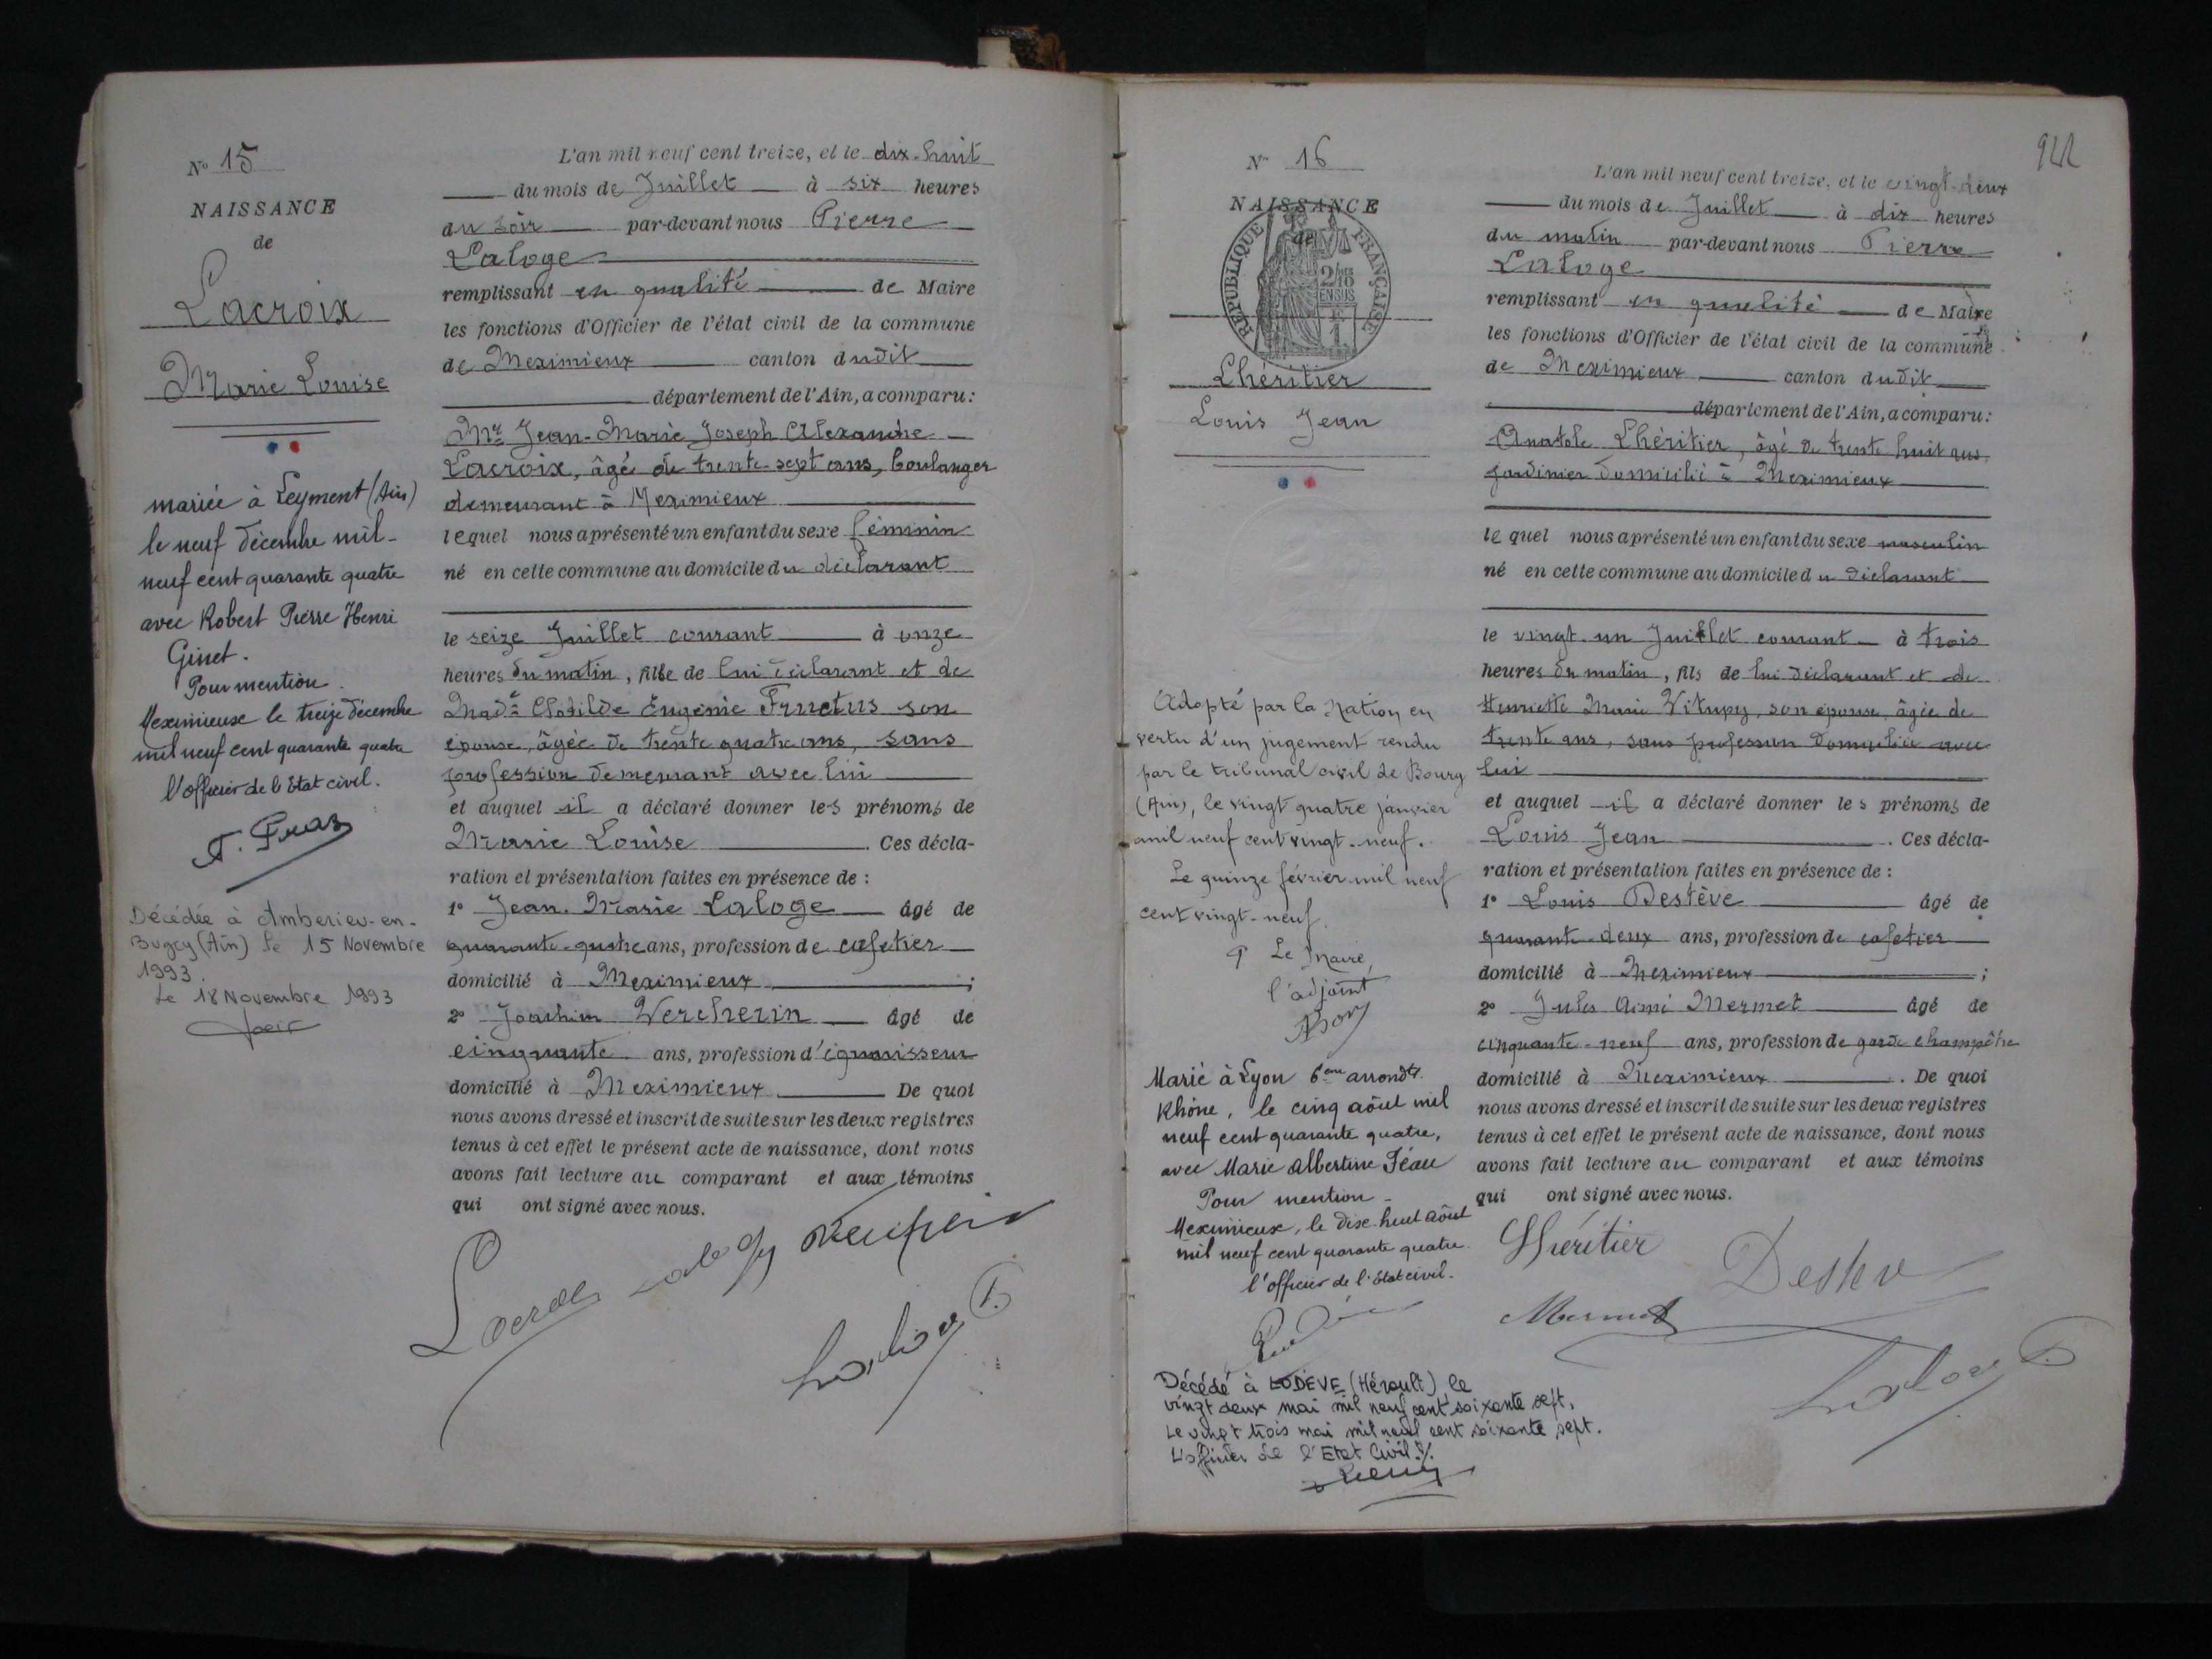 N° 15
NAISSANCE
de
Lacroix
Marie Louise
mariée à Leyment (Ain)
le neuf décembre mil-
neuf cent quarante quatre
avec Robert Pierre Henri
Ginet.
Pour mention.
Meximieux le treize décembre
mil neuf cent quarante quatre
l'officier de l'Etat civil.
Décédée à Amberieu-en-
Bugey (Ain) le 15 Novembre
1993.
Le 18 Novembre 1993
L'an mil neuf cent treize, et le dix-huit
du mois de Juillet à six heures
du soir par-devant nous Pierre
Laloge
remplissant en qualité de Maire
les fonctions d'Officier de l'état civil de la commune
de Meximieux canton dudit
département de l'Ain, a comparu:
Mr Jean-Marie Joseph Alexandre
Lacroix, âgé de trente-sept ans, boulanger
demeurant à Meximieux
lequel nous a présenté un enfant du sexe féminin
né en cette commune au domicile du déclarant
le seize Juillet courant à onze
heures du matin, fille de lui déclarant et de
Made Clotilde Eugénie Fructus son
épouse, âgée de trente quatre ans, sans
profession demeurant avec lui
et auquel il a déclaré donner les prénoms de
Marie Louise. Ces décla-
ration et présentation faites en présence de :
1° Jean-Marie Laloge âgé de
quarante-quatre ans, profession de cafetier
domicilié à Meximieux ;
2° Joachim Vercherin âgé de
cinquante ans, profession d'équarisseur
domicilié à Meximieux De quoi
nous avons dressé et inscrit de suite sur les deux registres
tenus à cet effet le présent acte de naissance, dont nous
avons fait lecture au comparant et aux témoins
qui ont signé avec nous.
N° 16
NAISSANCE
de
RÉPUBLIQUE FRANÇAISE
2/10
EN SUS
1
Lhéritier
Louis Jean
Adopté par la Nation en
vertu d'un jugement rendu
par le tribunal civil de Bourg
(Ain), le vingt quatre janvier
mil neuf cent vingt-neuf.
Le quinze février mil neuf
cent vingt-neuf.
P Le Maire,
l'adjoint
Marié à Lyon 6ème arrondt
Rhône, le cinq août mil
neuf cent quarante quatre,
avec Marie Albertine Féau
Pour mention -
Meximieux, le dix-huit août
mil neuf cent quarante quatre
l'officier de l'Etat civil.
Décédé à LODEVE (Hérault) le
vingt deux mai mil neuf cent soixante sept.
Le vingt trois mai mil neuf cent soixante sept.
L'officier de l'Etat Civil
L'an mil neuf cent treize, et le vingt-deux
du mois de Juillet à dix heures
du matin par-devant nous Pierre
Laloge
remplissant en qualité de Maire
les fonctions d'Officier de l'état civil de la commune
de Meximieux canton dudit
département de l'Ain, a comparu:
Anatole Lhéritier, âgé de trente huit ans,
jardinier domicilié à Meximieux
lequel nous a présenté un enfant du sexe masculin
né en cette commune au domicile du déclarant
le vingt-un Juillet courant à trois
heures du matin, fils de lui déclarant et de
Henriette Marie Vitupey, son épouse, âgée de
trente ans, sans profession domiciliée avec
lui
et auquel il a déclaré donner les prénoms de
Louis Jean. Ces décla-
ration et présentation faites en présence de :
1° Louis Destève âgé de
quarante-deux ans, profession de cafetier
domicilié à Meximieux ;
2° Jules Aimé Mermet âgé de
cinquante-neuf ans, profession de garde champêtre
domicilié à Meximieux. De quoi
nous avons dressé et inscrit de suite sur les deux registres
tenus à cet effet le présent acte de naissance, dont nous
avons fait lecture au comparant et aux témoins
qui ont signé avec nous.
Lhéritier
Mermet